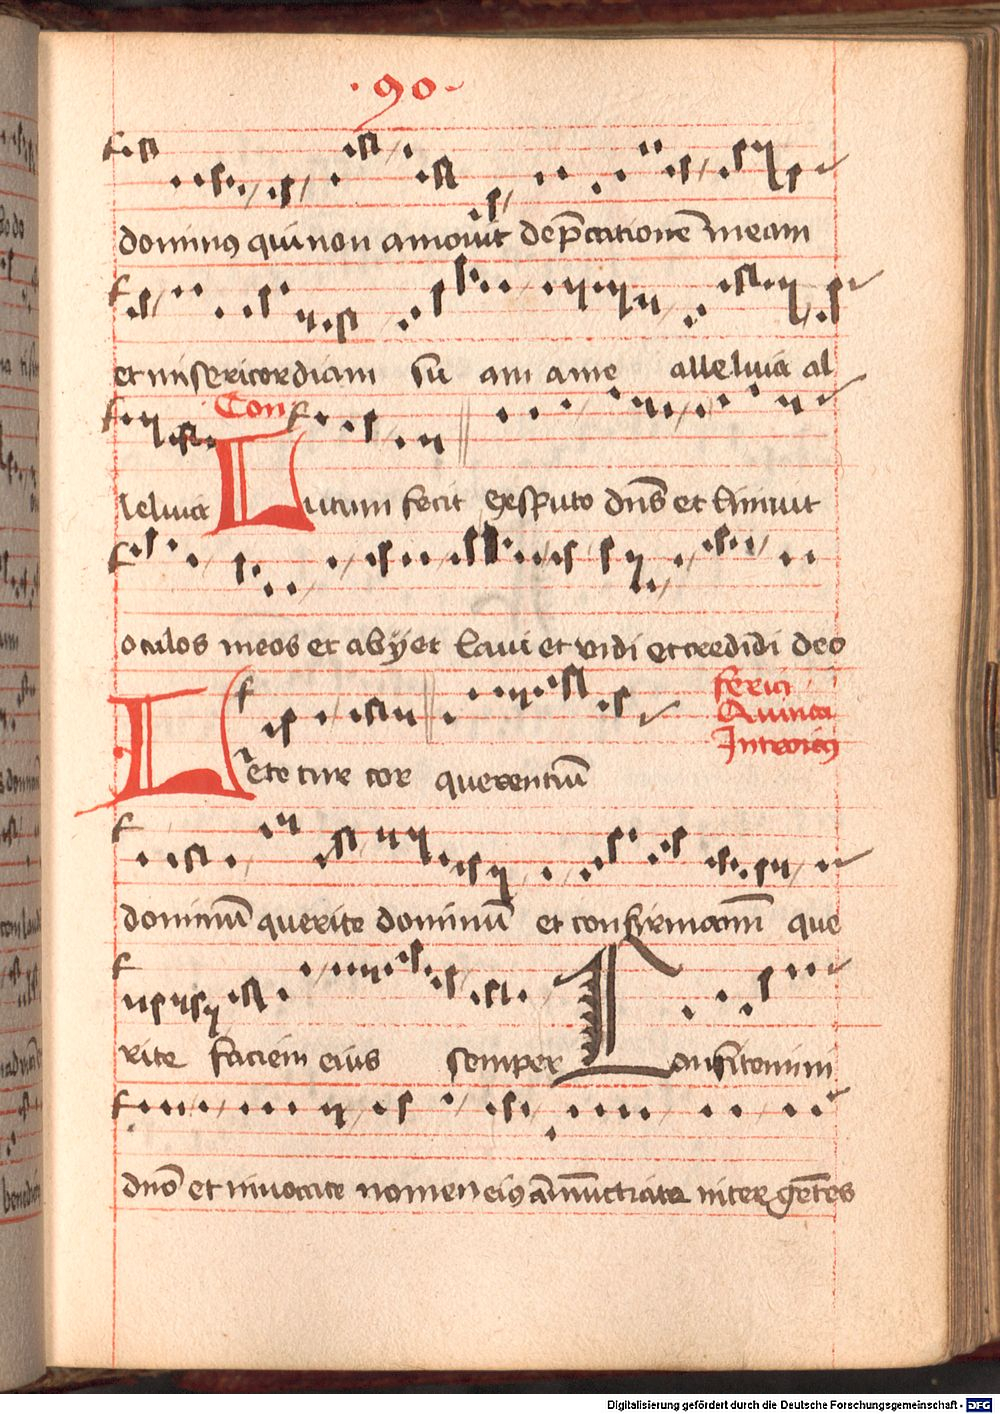 ·90·
dominꝰ qui non amouit dep̄cationē meam
et misericordiam su am a me alleluia al
Con
leluia Lutum fecit ex sputo dn̄s et liniuit
oculos meos et abij et laui et vidi et credidi deo
feria
Quinta
Introitꝰ
Letetur cor querentiū
dominū querite dominū et confirmamī que
rite faciem eius semper Confitemini
dn̄o et inuocate nomen eiꝰ annūctiate inter gētes
Digitalisierung gefördert durch die Deutsche Forschungsgemeinschaft - DFG